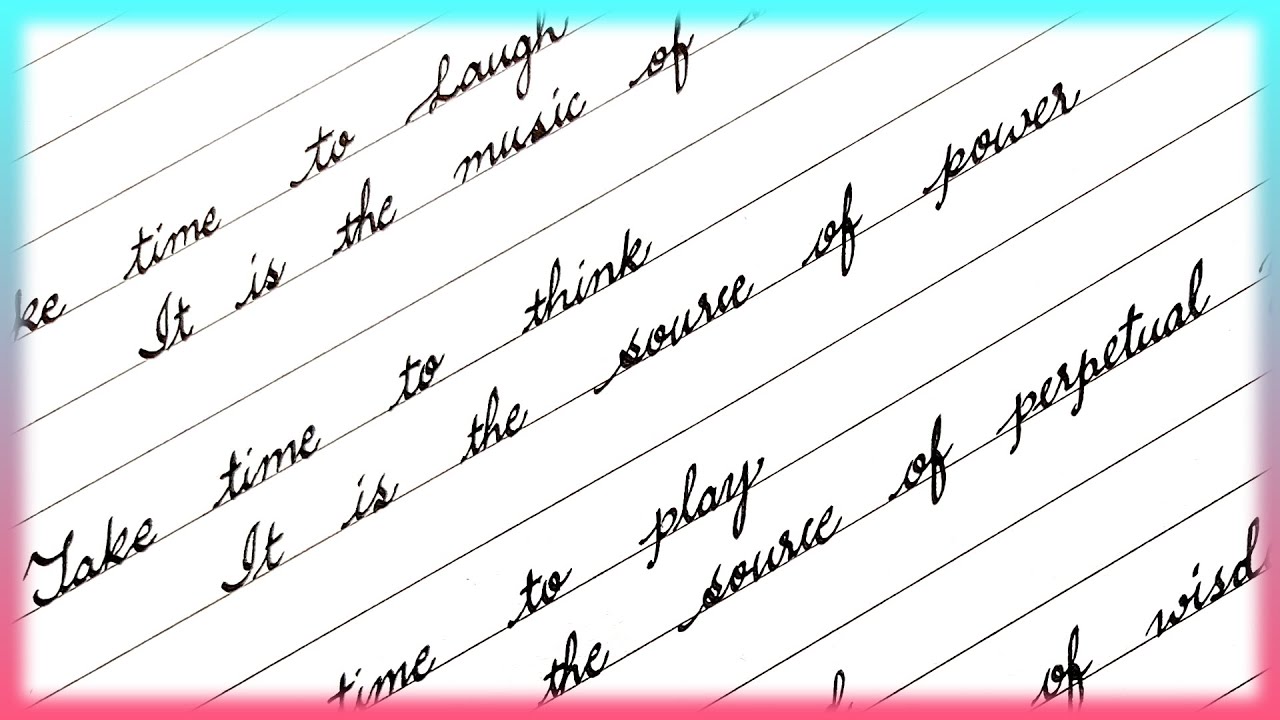 ke time to Laugh
It is the music of
Take time to think
It is the source of power
time to play
the source of perpetual
of wisd